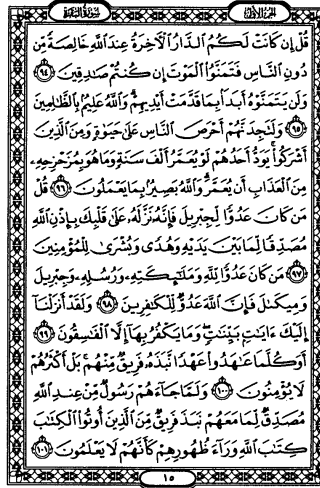 الجزء الأول
سورة البقرة
قُلْ إِن كَانَتْ لَكُمُ الدَّارُ الْآخِرَةُ عِندَ اللَّهِ خَالِصَةً مِّن
دُونِ النَّاسِ فَتَمَنَّوُا الْمَوْتَ إِن كُنتُمْ صَادِقِينَ ﴿٩٤﴾
وَلَن يَتَمَنَّوْهُ أَبَدًا بِمَا قَدَّمَتْ أَيْدِيهِمْ وَاللَّهُ عَلِيمٌ بِالظَّالِمِينَ
﴿٩٥﴾ وَلَتَجِدَنَّهُمْ أَحْرَصَ النَّاسِ عَلَىٰ حَيَوٰةٍ وَمِنَ الَّذِينَ
أَشْرَكُوا يَوَدُّ أَحَدُهُمْ لَوْ يُعَمَّرُ أَلْفَ سَنَةٍ وَمَا هُوَ بِمُزَحْزِحِهِ
مِنَ الْعَذَابِ أَن يُعَمَّرَ وَاللَّهُ بَصِيرٌ بِمَا يَعْمَلُونَ ﴿٩٦﴾ قُلْ
مَن كَانَ عَدُوًّا لِّجِبْرِيلَ فَإِنَّهُ نَزَّلَهُ عَلَىٰ قَلْبِكَ بِإِذْنِ اللَّهِ
مُصَدِّقًا لِّمَا بَيْنَ يَدَيْهِ وَهُدًى وَبُشْرَىٰ لِلْمُؤْمِنِينَ
﴿٩٧﴾ مَن كَانَ عَدُوًّا لِّلَّهِ وَمَلَٰئِكَتِهِ وَرُسُلِهِ وَجِبْرِيلَ
وَمِيكَىٰلَ فَإِنَّ اللَّهَ عَدُوٌّ لِّلْكَٰفِرِينَ ﴿٩٨﴾ وَلَقَدْ أَنزَلْنَا
إِلَيْكَ ءَايَٰتٍ بَيِّنَٰتٍ وَمَا يَكْفُرُ بِهَا إِلَّا الْفَٰسِقُونَ ﴿٩٩﴾
أَوَكُلَّمَا عَٰهَدُوا عَهْدًا نَّبَذَهُ فَرِيقٌ مِّنْهُم بَلْ أَكْثَرُهُمْ
لَا يُؤْمِنُونَ ﴿١٠٠﴾ وَلَمَّا جَاءَهُمْ رَسُولٌ مِّنْ عِندِ اللَّهِ
مُصَدِّقٌ لِّمَا مَعَهُمْ نَبَذَ فَرِيقٌ مِّنَ الَّذِينَ أُوتُوا الْكِتَٰبَ
كِتَٰبَ اللَّهِ وَرَاءَ ظُهُورِهِمْ كَأَنَّهُمْ لَا يَعْلَمُونَ ﴿١٠١﴾
١٥